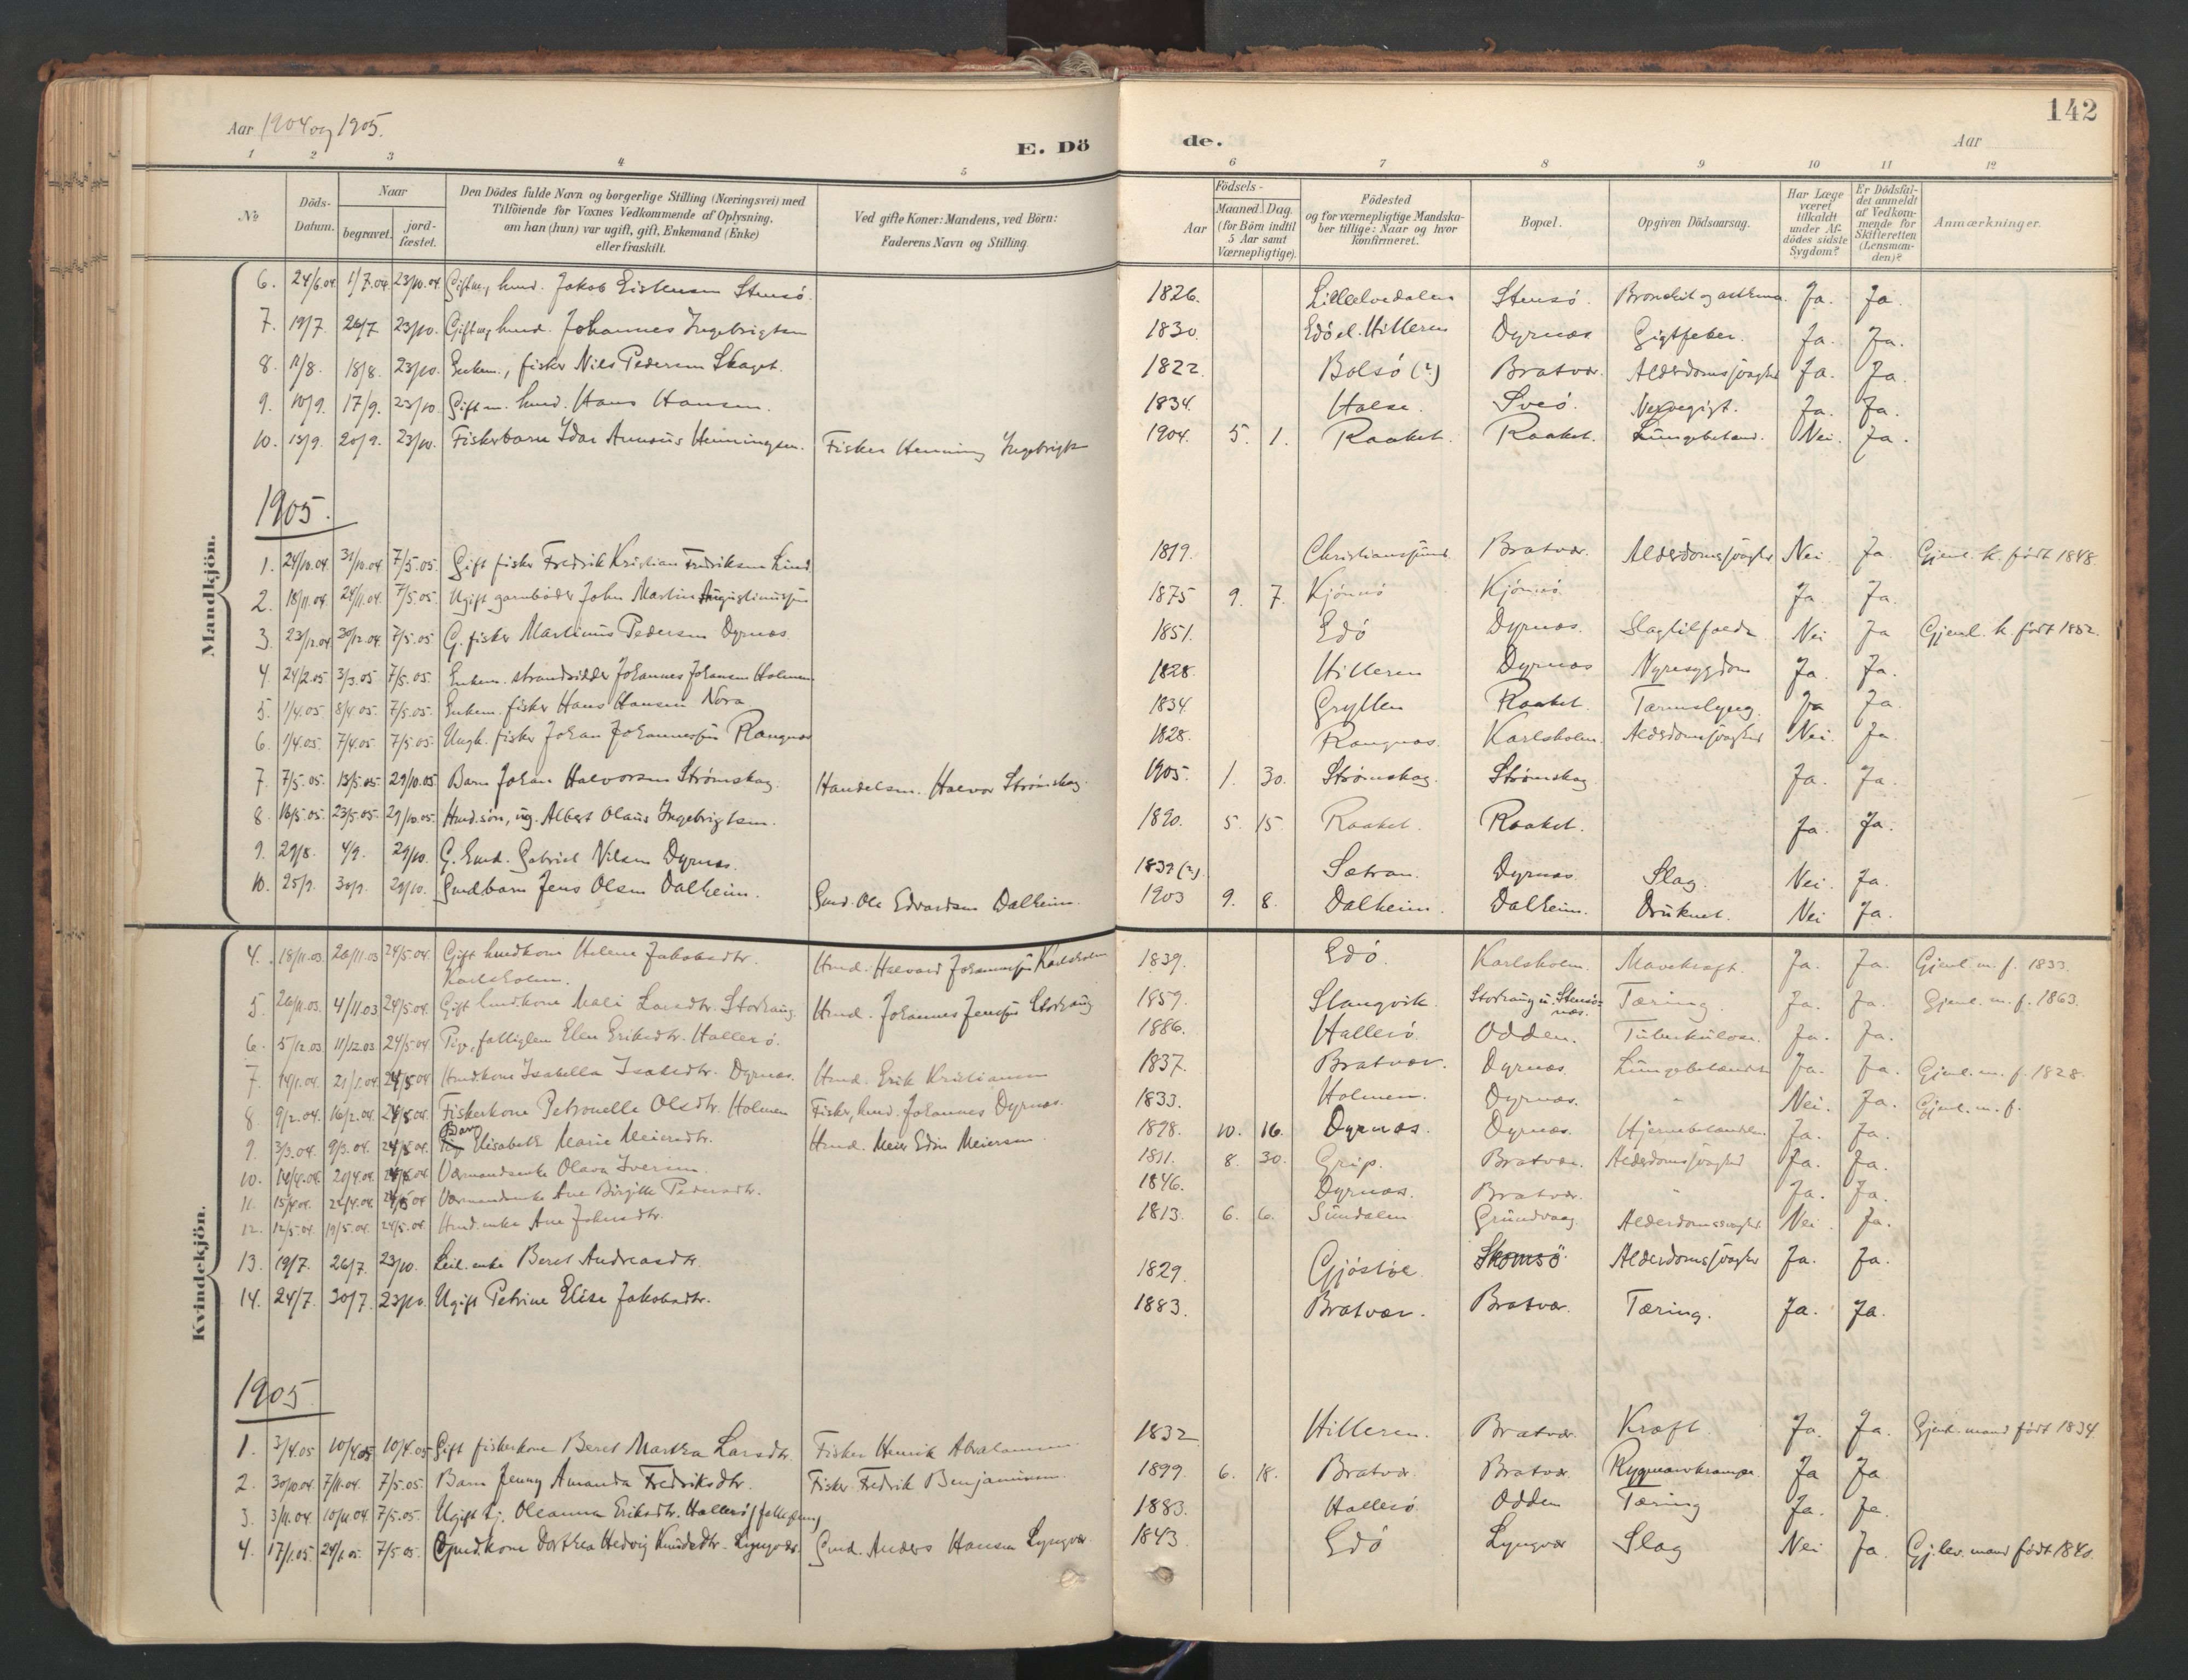 142
Aar 1904 og 1905.
E. Dö
de.
Aar
1 2 3 4 5 6 7 8 9 10 11 12
№
Döds-Datum.
Naar
begravet.
jord-fæstet.
Den Dödes fulde Navn og borgerlige Stilling (Næringsvei) med
Tilföiende for Voxnes Vedkommende af Oplysning,
om han (hun) var ugift, gift, Enkemand (Enke)
eller fraskilt.
Ved gifte Koner: Mandens, ved Börn:
Faderens Navn og Stilling.
Födsels-
Aar
Maaned. Dag.
(for Börn indtil
5 Aar samt
Værnepligtige).
Födested
og for værnepligtige Mandska-
ber tillige: Naar og hvor
konfirmeret.
Bopæl.
Opgiven Dödsaarsag.
Har Læge
været
tilkaldt
under Af-
dödes sidste
Sygdom?
Er Dödsfal-
det anmeldt
af Vedkom-
mende for
Skifteretten
(Lensman-
den)?
Anmærkninger.
Mandkjön.
6. 24/6.04. 1/7.04. 23/10.04. Giftm., husd. Jakob Stensö. 1826. Stensö. Ja. Ja.
7. 19/7. 26/7. 23/10. Johannes Ingebrigtsen 1830. Edö el. Hitteren Dyrnæs Gigtfeber. Ja. Ja.
8. 11/8. 18/8. 23/10. Enkem., fisker Nils Pedersen Skaget. 1822 Bolsö (?) Bratvær. Alderdomssvaghed Ja. Ja.
9. 10/9. 17/9. 23/10. Giftm. husd. Hans Hansen. 1834. Halse. Sveö. Ja. Ja.
10. 13/9. 20/9. 23/10. Fiskerbarn Idar Henningsen. Fisker Henning Ingebrigts 1904. 5. 1. Raaket. Raaket. Lungebetænd. Nei. Ja.
1905.
1. 24/10.04. 31/10.04 7/5.05. Gift fisker Fredrik Kristian Fredriksen Lind. 1819. Christianssund Bratvær. Alderdomssvaghed Nei. Ja. Gjenl. k. født 1848.
2. 18/11.04. 24/11.04. 7/5.05. Ugift garnbøder John Martin Augustinussøn 1875 9. 7. Kjönnö Kjönnö Ja. Ja.
3. 23/12.04 30/12.04 7/5.05 G. fisker Martinus Pedersen Dyrnæs. 1851. Edö Dyrnæs. Slagtilfælde Nei Ja Gjenl. k. født 1852.
4. 24/2.05 3/3.05 7/5.05. Enkem. strandsidder Johannes Johansen Holmen 1828. Hitteren Dyrnæs Nyresygdom Ja. Ja.
5. 1/4.05 8/4.05 7/5.05. Enkem. fisker Hans Hansen Nora 1834 Gryllen Raaket. Ja Ja.
6. 1/4.05. 7/4.05 7/5.05. Ungk. fisker Johan Johannessøn Rangnæs 1828. Rangnæs. Karlsholm. Alderdomssvaghed Nei. Ja
7. 7/5.05. 13/5.05. 29/10.05 Barn Johan Halvorsen Strømskag. Handelsm. Halvor Strømskag 1905. 1. 30. Strømskag. Strømskag Ja. Ja.
8. 16/5.05. 23/5.05. 29/10.05. Husd. søn, ug. Albert Olaus Ingebrigtsen. 1890. 5. 15. Raaket. Raaket. Ja. Ja.
9. 29/8. 4/9. 29/10. G. Gmd. Gabriel Nilsen Dyrnæs. 1832 (?) Sætran. Dyrnæs. Slag. Nei. Ja.
10. 25/9. 30/9. 29/10. Gmdbarn Jens Olsen Dalheim. Gmd. Ole Edvardsen Dalheim. 1903 9. 8. Dalheim. Dalheim. Druknet. Nei Ja.
Kvindekjön.
4. 18/11.03. 26/11.03 24/5.04. Gift husdkone Helene Jakobsdtr.
Karlsholm. Husd. Halvard Johannessøn Karlsholm 1839. Edö Karlsholm. Mavekræft. Ja. Ja. Gjenl. m. f. 1833.
5. 26/11.03. 4/11.03 24/5.04. Gift husdkone Mali Larsdtr. Husd. Johannes Jenssøn 1859. Slangvik. Tæring Ja. Ja. Gjenl. m. f. 1863.
6. 5/12.03 11/12.03 24/5.04 Pige, fattiglem Elen Eriksdtr. Hallerö. 1886. Hallerö. Odden. Tuberkulose. Ja. Ja.
7. 14/1.04. 21/1.04. 24/5.04 Husdkone Isabella Isaksdtr. Dyrnæs. Husd. Erik Kristiansen 1837. Bratvær. Dyrnæs. Lungebetændelse Ja. Ja. Gjenl. m. f. 1828.
8. 9/2.04. 16/2.04. 24/5.04. Fiskerkone Petronelle Olsdtr. Holmen Fisker, husd. Johannes Dyrnæs. 1833. Holmen. Dyrnæs. " Nei. Ja. Gjenl. m. f.
9. 3/3.04. 9/3.04. 24/5.04. Barn Elisabeth Marie Meiersdtr. Husd. Meier Edin Meiersen 1898. 10. 16. Dyrnæs. Dyrnæs. Hjernebetændelse. Ja. Ja.
10. 14/4.04. 20/4.04. 24/5.04 Olava Iversen. 1811. 8. 30. Grip. Bratvær. Alderdomssvaghed Ja. Ja.
11. 15/4.04. 22/4.04. 24/5.04 Ane Birgitte Pedersdtr. 1846. Dyrnæs. Bratvær. " Ja. Ja.
12. 12/5.04. 19/5.04. 24/5.04. Husd. enke Ane Johnsdtr. 1813. 6. 6. Sundalen Grundvaag. Alderdomssvaghed Nei. Ja.
13. 19/7. 26/7. 23/10. Leil. enke Beret Andreasdtr. 1829. Gjöstöl Skomsö Alderdomssvaghed Ja. Ja.
14. 24/7. 30/7. 23/10. Ugift Petrine Elise Jakobsdtr. 1883. Bratvær. Bratvær. Tæring. Ja. Ja.
1905
1. 3/4.05 10/4.05 10/4.05 Gift fiskerkone Beret Martha Larsdtr. Fisker Henrik Abrahamsen. 1832 Hitteren. Bratvær. Kræft. Ja. Ja. Gjenl. mand født 1834.
2. 30/10.04. 7/11.04. 7/5.05. Barn Jenny Amanda Fredriksdtr. Fisker Fredrik Benjaminsen. 1899. 6. 18. Bratvær. Bratvær. Rygmarvkrampe. Ja Ja
3. 3/11.04. 10/11.04. 7/5.05. Ugift tj. Oleanna Eriksdtr. Hallerö 1883. Hallerö. Odden Tæring Ja. Ja.
4. 17/1.05. 24/1.05. 7/5.05. Gmdkone Dorthea Hedvig Knudsdtr. Lyngvær. Gmd. Anders Hansen Lyngvær. 1843. Edö Lyngvær Slag Nei Ja. Gj. lev. mand født 1840.